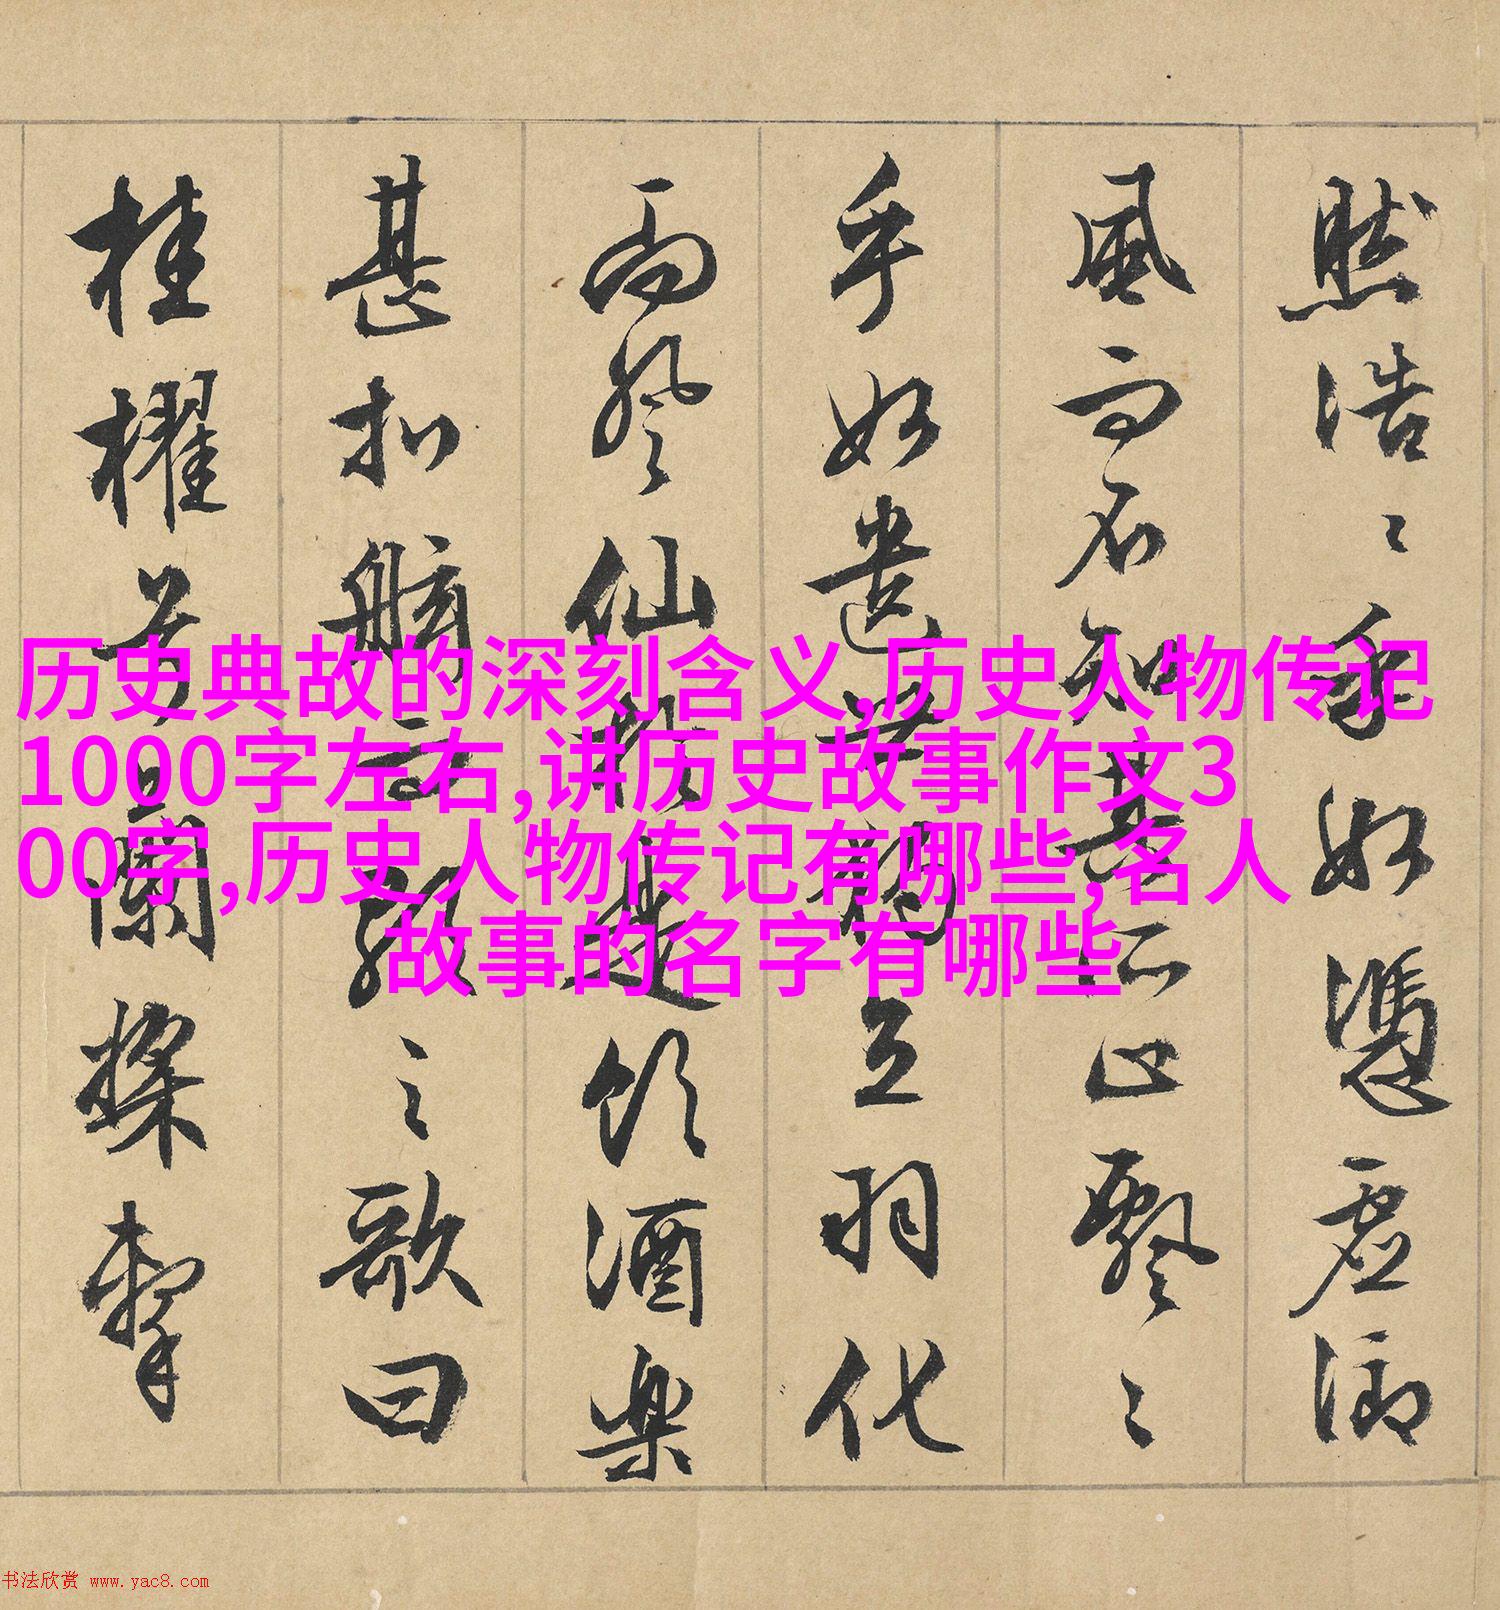 然浩〻乎如憑虛御
風而不知其所止飄〻
乎如遺世獨立羽化
而登仙於是飲酒樂
甚扣舷而歌之歌曰
桂櫂兮蘭槳擊
历史典故的深刻含义,历史人物传记
1000字左右,讲历史故事作文3
00字,历史人物传记有哪些,名人
故事的名字有哪些
书法欣赏 www.yac8.com